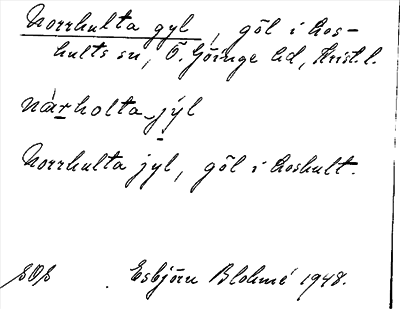 Norrhulta gyl, göl i Hos-
hults sn, Ö. Göinge hd, Krist. l.
nàrholta jýl
Norrhulta jyl, göl i Hoshult.
Esbjörn Blohmé 1948.